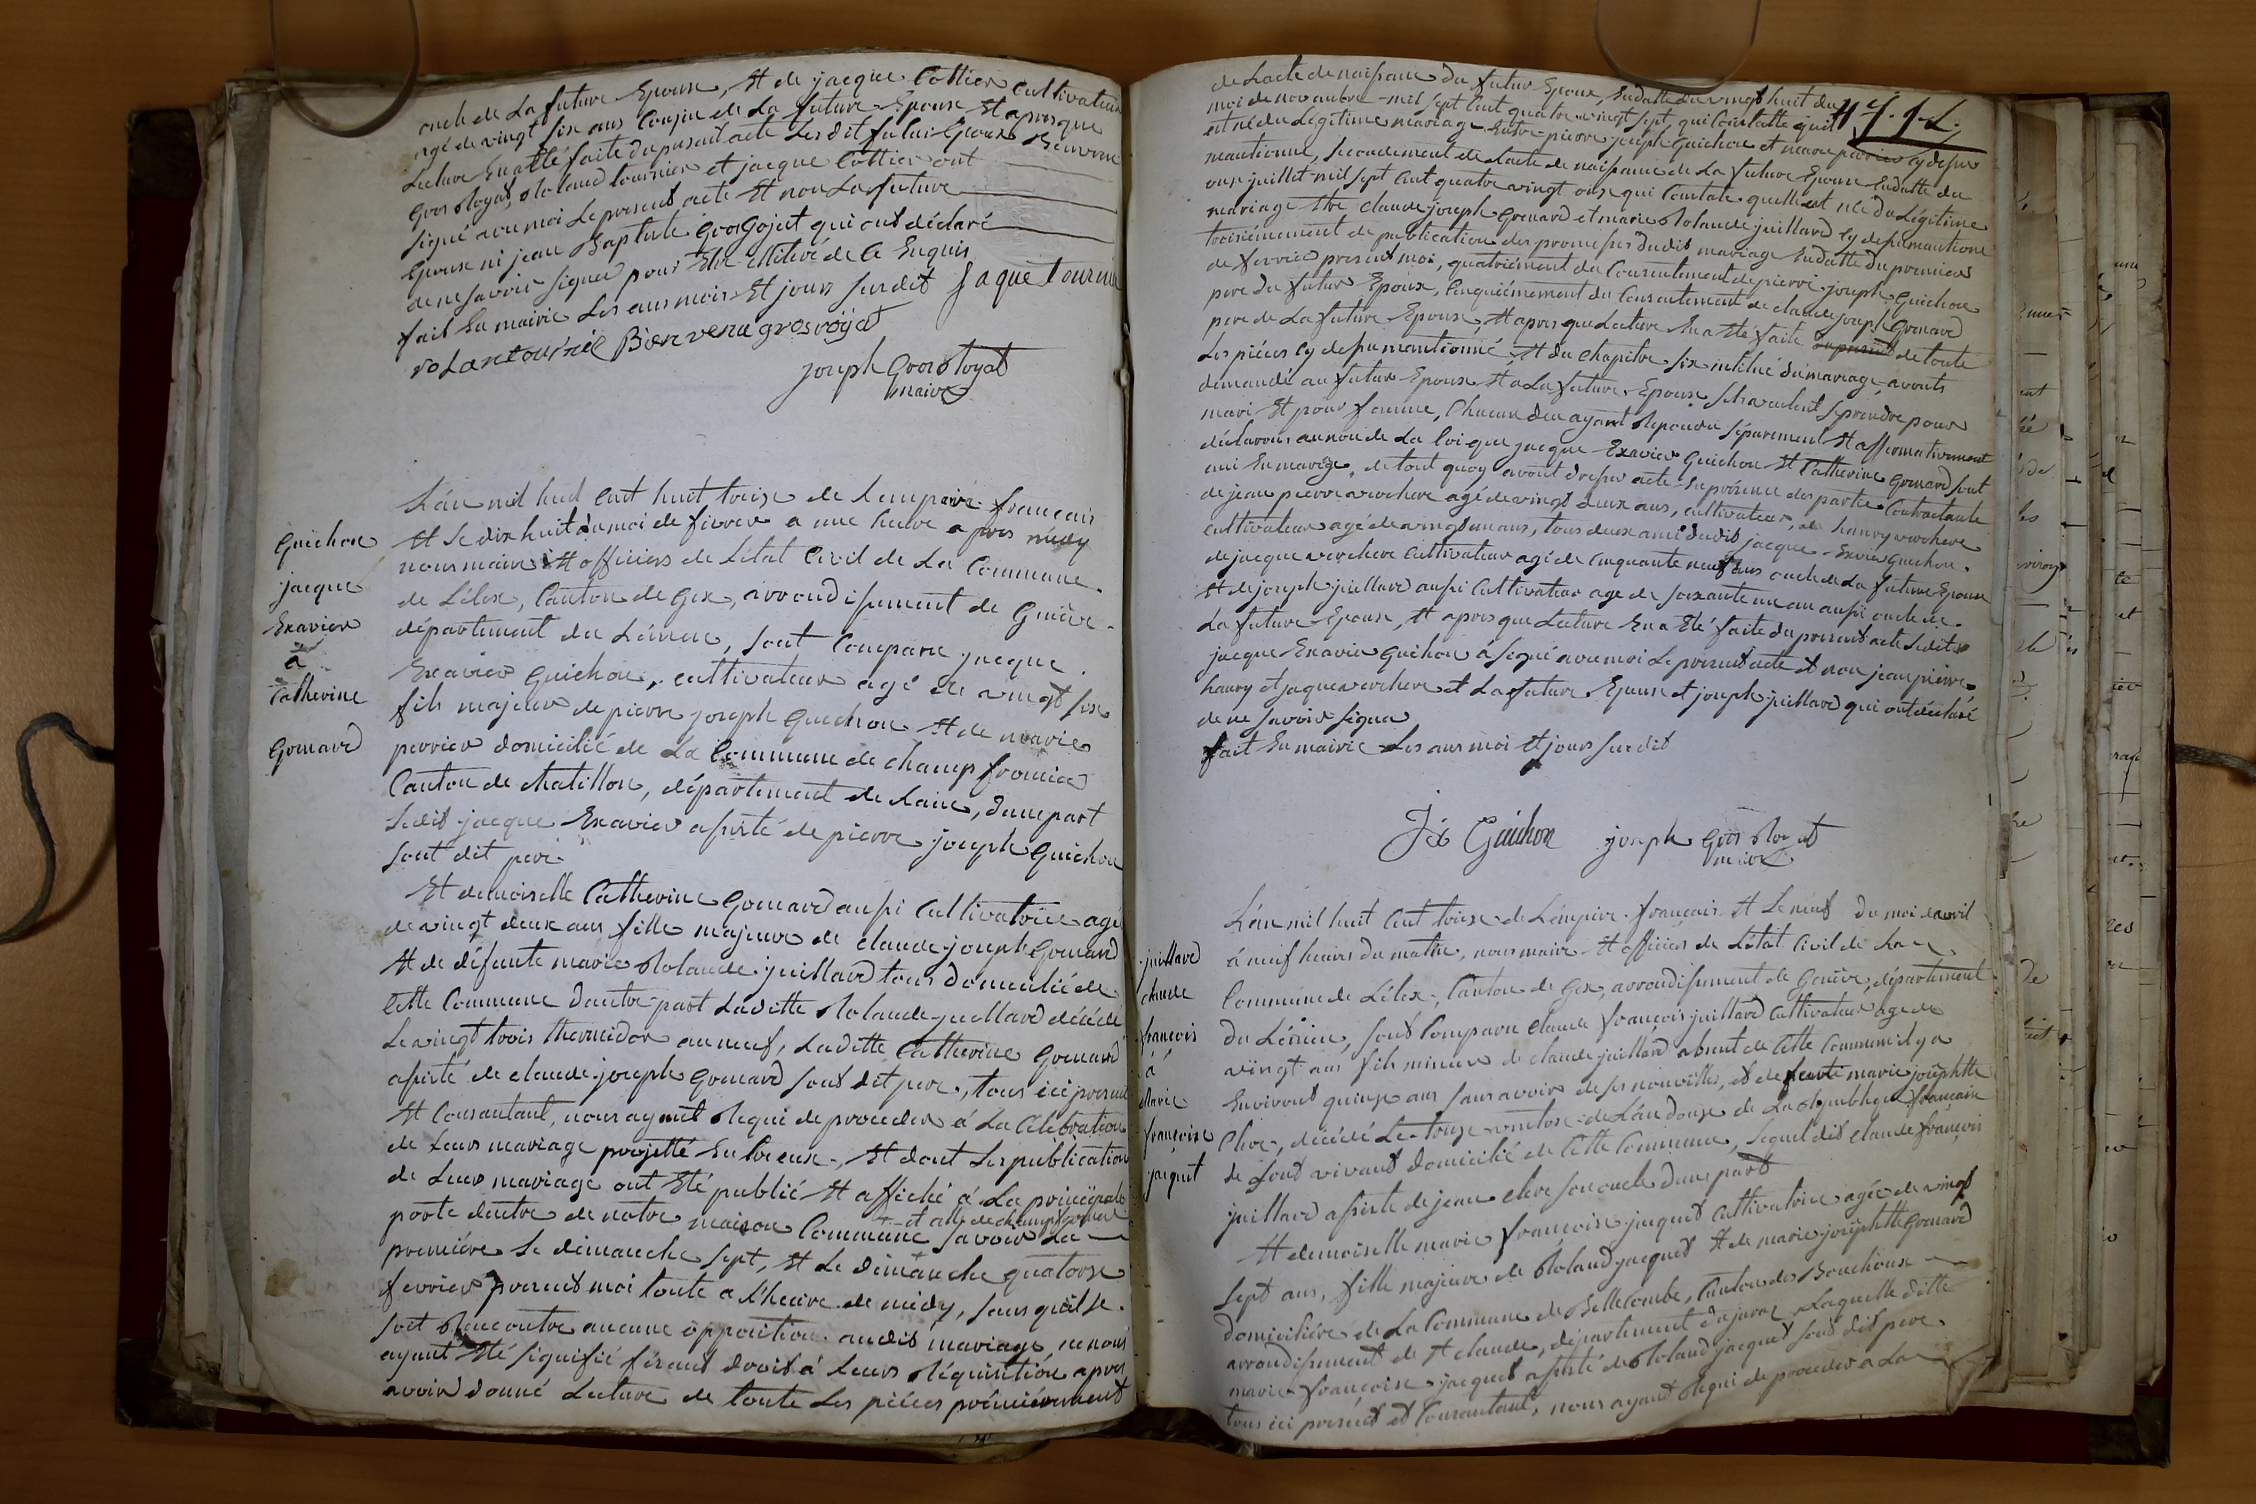 oncle de La future Epouse, Et de jacque Cottier Cultivateur
agé de vingt six ans Cousin de La future Epouse Et apres que
Lecture En a Eté faite du present acte Les dit futur Epoux Bienvenu
Gros Royat, Roland tournier et jacque Cottier ont
signé avec moi Le present acte Et non La future
Epouse ni jean Baptiste Grosgojat qui ont déclaré
de ne savoir signer pour Etre illitéré de Ce Enquis
fait En mairie Les ans mois Et jours susdit Jaque tournie
rolan tournié Bienvenu grosroyat
joseph Gros Royat
maire
Guichon
jacque
Exavier
à
Catherine
Gomard
L'an mil huit Cent huit treize de L'empire francais
Et Le dix huit du moi de fevrier a une heure apres midy
nous maire Et officiers de L'état Civil de La Commune
de Lélex, Canton de Gex, arrondissement de Genève
département du Léman, sont Comparu jacque
Exavier Guichon, cultivateur agé de vingt six
fils majeur de pierre joseph Guichon Et de marie
perrier domicilié de La Commune de champ fromier
Canton de chatillon, département de Lain, d'une part
Ledit jacque Exavier assisté de pierre joseph Guichon
sont dit pere.
Et demoiselle Catherine Gomard aussi Cultivatrice agé
de vingt deux ans fille majeure de claude joseph Gomard
Et de défunte marie Rolande juillard tous domicilié de
Cette Commune d'autre part Laditte Rolande juillard décédé
Le vingt trois thermidor an neuf, Laditte Catherine Gomard
assisté de claude joseph Gomard sont dit pere, tous ici present
Et Consantant, nous ayant Requi de proceder à La Célébration
de Leurs mariage projetté Entre eux, Et dont Les publication
de Leurs mariage ont Eté publié Et affiché à La principale
porte d'entre de notre maison Commune et celle de champfromier savoir La
premiére Le dimanche sept, Et Le dimanche quatorze
fevrier present moi toute a l'heure de midy, sans qu'il se
soit Rencontre aucune opposition audit mariage, ne nous
ayant Eté signifié fesant droit à Leurs Réquisition apres
avoir donné Lecture de toute Les piéces prémiérement
de L'acte de naissance du futur Epoux, En datte du vingt huit du
moi de novembre mil sept Cent quatre vingt sept, qui Constatte quil
est né du Légitime mariage Entre pierre joseph Guichon et marie perrier cy dessu
mantionné, secondement de L'acte de naissance de La future Epouse En datte du
onze juillet mil sept Cent quatre vingt onze qui Constate quelle est née du Légitime
mariage Etre claude joseph Gomard et marie Rolande juillard cy dessu mantionné
troisiémement de publication des promesses dudit mariage En datte du premier
de fevrier present moi, quatriément du Consentement de pierre joseph Guichon
pere du futur Epoux, Cinquiémement du Consentement de claude joseph Gomard
pere de La future Epouse, Et apres que Lecture En a Eté faite de toute
Les piéces cy dessu mantionné Et du chapitre six intitué du mariage, avonts
demandé au futur Epoux Et a La future Epouse s'ils veulent se prendre pour
mari Et pour femme, Chacun deux ayant Repondu séparément Et affirmativement
déclarons au nom de La loi que jacque Exavier Guichon Et Catherine Gomard sont
uni En mariage, de tout quoy avont dresser acte En présence des partie Contractante
de jean pierre vrochere agé de vingt deux ans, cultivateur, de hanry vrochere
cultivateur agé de vingt un ans, tous deux ami dudit jacque Exavier Guichon,
de jacque vrochere Cultivateur agé de Cinquante neuf ans oncle de La future Epouse
Et de joseph juillard aussi Cultivateur age de soixante un an aussi oncle de
La future Epouse, Et apres que Lecture En a Eté faite du present acte Ledit
jacque Exavier Guichon à signé avec moi Le present acte Et non jean pierre
hanry et jaque vrochere et La future Epouse et joseph juillard qui ont déclaré
de ne savoir signer
fait En mairie Les ans moi Et jours susdit
Jx Guichon joseph Gros Royat
maire
juillard
claude
francois
à
Marie
françoise
jacquet
L'an mil huit Cent treize de L'empire francais Et Le neuf du moi d'avril
à neuf heures du matin, nous maire Et officiers de L'état Civil de La
Commune de Lélex, Canton de Gex, arrondissement de Genève, département
du Léman, sont Comparu claude francois juillard Cultivateur age de
vingt ans fils mineur de claude juillard absent de Cette Commune il y a
Environt quinze ans sans avoir de ses nouvelles, et de feue marie josephtte
Cleve, décédé Le treize ventose de L'an douze de La Republique francaise
de sont vivant domicilié de Cette Commune, Lequel dit claude francois
juillard assiste de jean cleve son oncle d'une part
Et demoiselle marie francoise jacquet cultivatrice agée de vingt
sept ans, fille majeure de Roland jacquet Et de marie josephtte Gomard
domiciliére de La Commune de Bellecombe, Canton des Bouchoux
arrondissement de St claude, département du jura, Laquelle ditte
marie francoise jacquet assisté de Roland jacquet sont dit pere
tous ici present et Consantant, nous ayant Requi de proceder a La